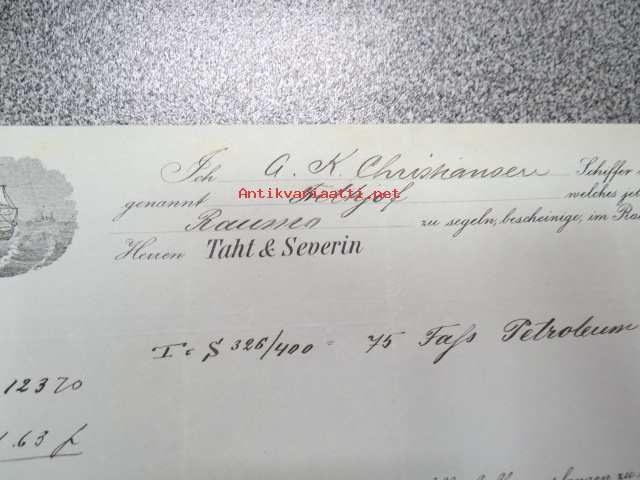 Ich A. K. Christiansen Schiffer
Antikvariaatti.net
genannt welches jet
Rauma zu segeln, bescheinige, im Ra
Herren Taht & Severin
326/400 = 75 Faß Petroleum
12370
.63